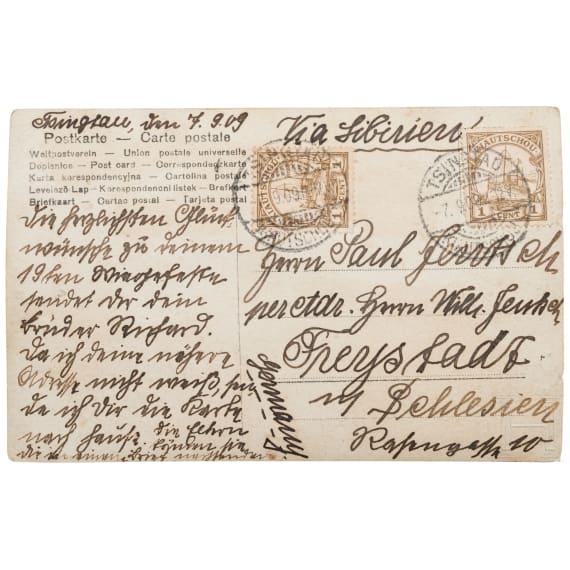 Tsingtau, den 7.9.09
Postkarte — Carte postale
Weltpostverein — Union postale universelle
Dopisnice — Post card — Correspondenzkarte
Karta korespondencyjna — Cartolina postale
Levelező Lap — Korespondencni listek — Briefkaart
Briefkaart — Tarjeta postal
Die herzlichsten Glück
wünsche zu deinem
19ten Wiegenfeste
sendet dir dein
Bruder Richard.
Da ich deine nähere
Adresse nicht weiß,
de ich Dir die Karte
nach Hause. die Eltern
können sie
dir in einem Brief nachsenden
Via Sibirien
KIAUTSCHOU
1 CENT
TSINGTAU
7.9.09
KIAUTSCHOU
1 CENT
TSINGTAU
Herrn Paul
per Adr. Herrn Wilh.
Freystadt
in Schlesien
10
Germany